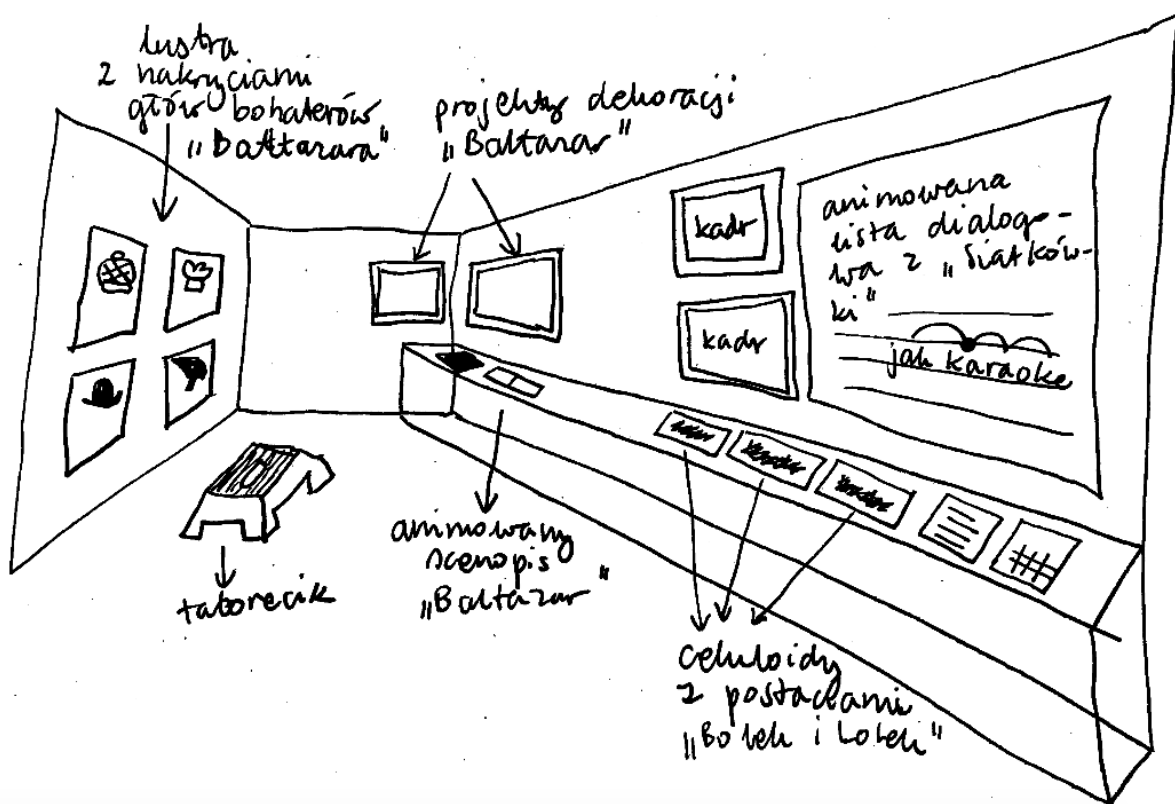 lustra
z nakryciami
głów bohaterów
„Baltazara"
projekty dekoracji
„Baltazar"
kadr
kadr
animowana
lista dialogo-
wa z „Siatków-
ki"
jak karaoke
animowany
scenopis
„Baltazar"
taborecik
celuloidy
z postaciami
„Bolek i Lolek"